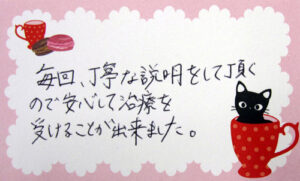 毎回、丁寧な説明をして頂く
ので安心して治療を
受けることが出来ました。